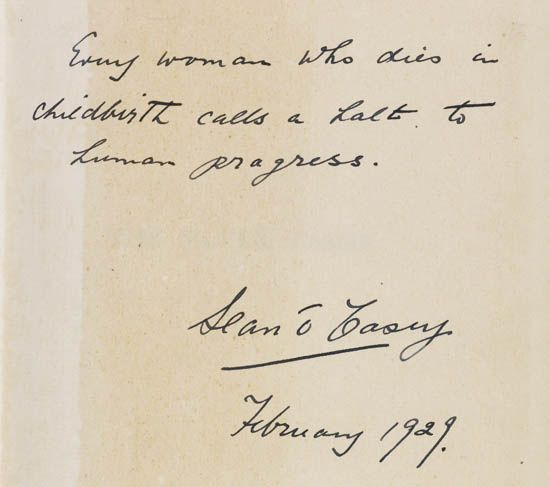 Every woman who dies in
childbirth calls a halt to
human progress.
Sean O'Casey
February 1929.